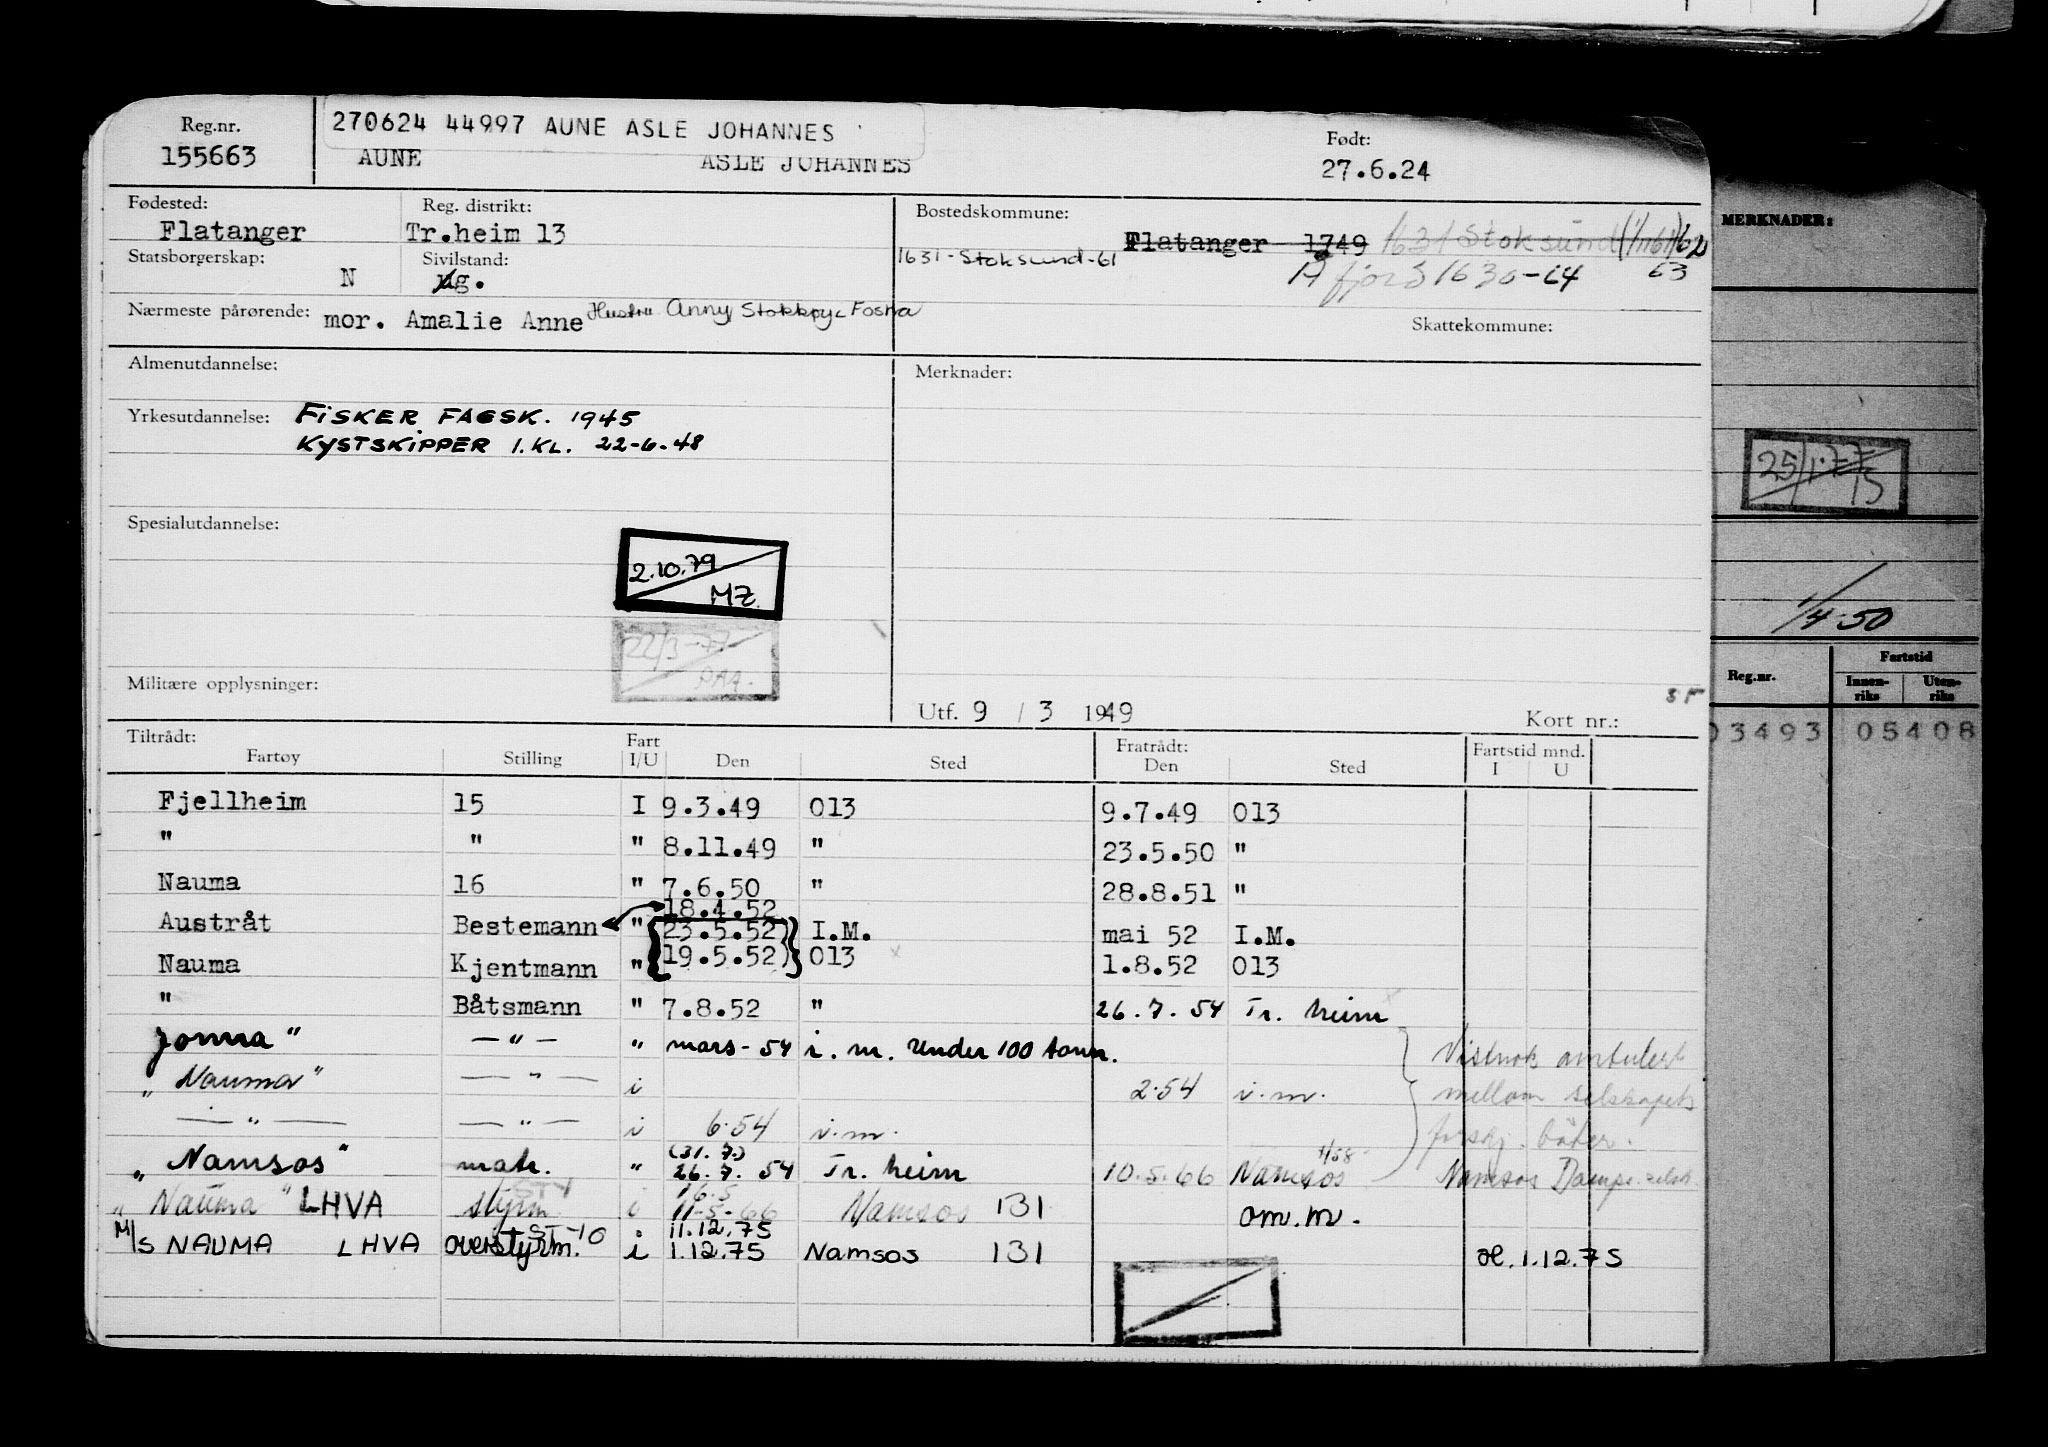 Reg.nr.
155663
270624 44997 AUNE ASLE JOHANNES
AUNE ASLE JOHANNES
Født:
27.6.24
Fødested:
Flatanger
Reg. distrikt:
Tr.heim 13
Bostedskommune:
Flatanger 1749 1631 Stoksund
1631-Stoksund-61
Åfjord 1630-64 63
Statsborgerskap:
N
Sivilstand:
ug.
Nærmeste pårørende: mor. Amalie Anne Hustru Anny, Fosna
Skattekommune:
Almenutdannelse:
Merknader:
Yrkesutdannelse: FISKER FAGSK. 1945
KYSTSKIPPER 1. KL. 22-6-48
Spesialutdannelse:
2.10.79
MZ.
22/3-77
PAA.
Militære opplysninger:
Utf. 9 / 3 1949
Kort nr.:
Tiltrådt: Fartøy Stilling Fart I/U Den Sted Fratrådt: Den Sted Fartstid mnd. I U
Fjellheim 15 I 9.3.49 013 9.7.49 013
" " " 8.11.49 " 23.5.50 "
Nauma 16 " 7.6.50 " 28.8.51 "
18.4.52
Austråt Bestemann " 23.5.52 I.M. mai 52 I.M.
Nauma Kjentmann " 19.5.52 013 1.8.52 013
" Båtsmann " 7.8.52 " 26.7.54 Tr. heim
Jonna" — " — " mars-54 i.m. under 100 tonn.
"Nauma" — " — i 2.54 i.m.
— " — — " — i 6.54 i.m.
Vistnok ambulert
mellom selskapets
forskj. båter.
(31.7.)
"Namsos" matr. " 26.7.54 Tr. heim 10.5.66 Namsos
Namsos
16.5
"Nauma" LHVA styrm. i 11-5-66 Namsos 131 om.m.
ST-10 11.12.75
M/S NAUMA LHVA overstyrm. i 1.12.75 Namsos 131 1.12.75
MERKNADER:
25/1-77
1/4-50
Reg.nr.
Fartstid
Innen-
riks
Uten-
riks
03493 05408